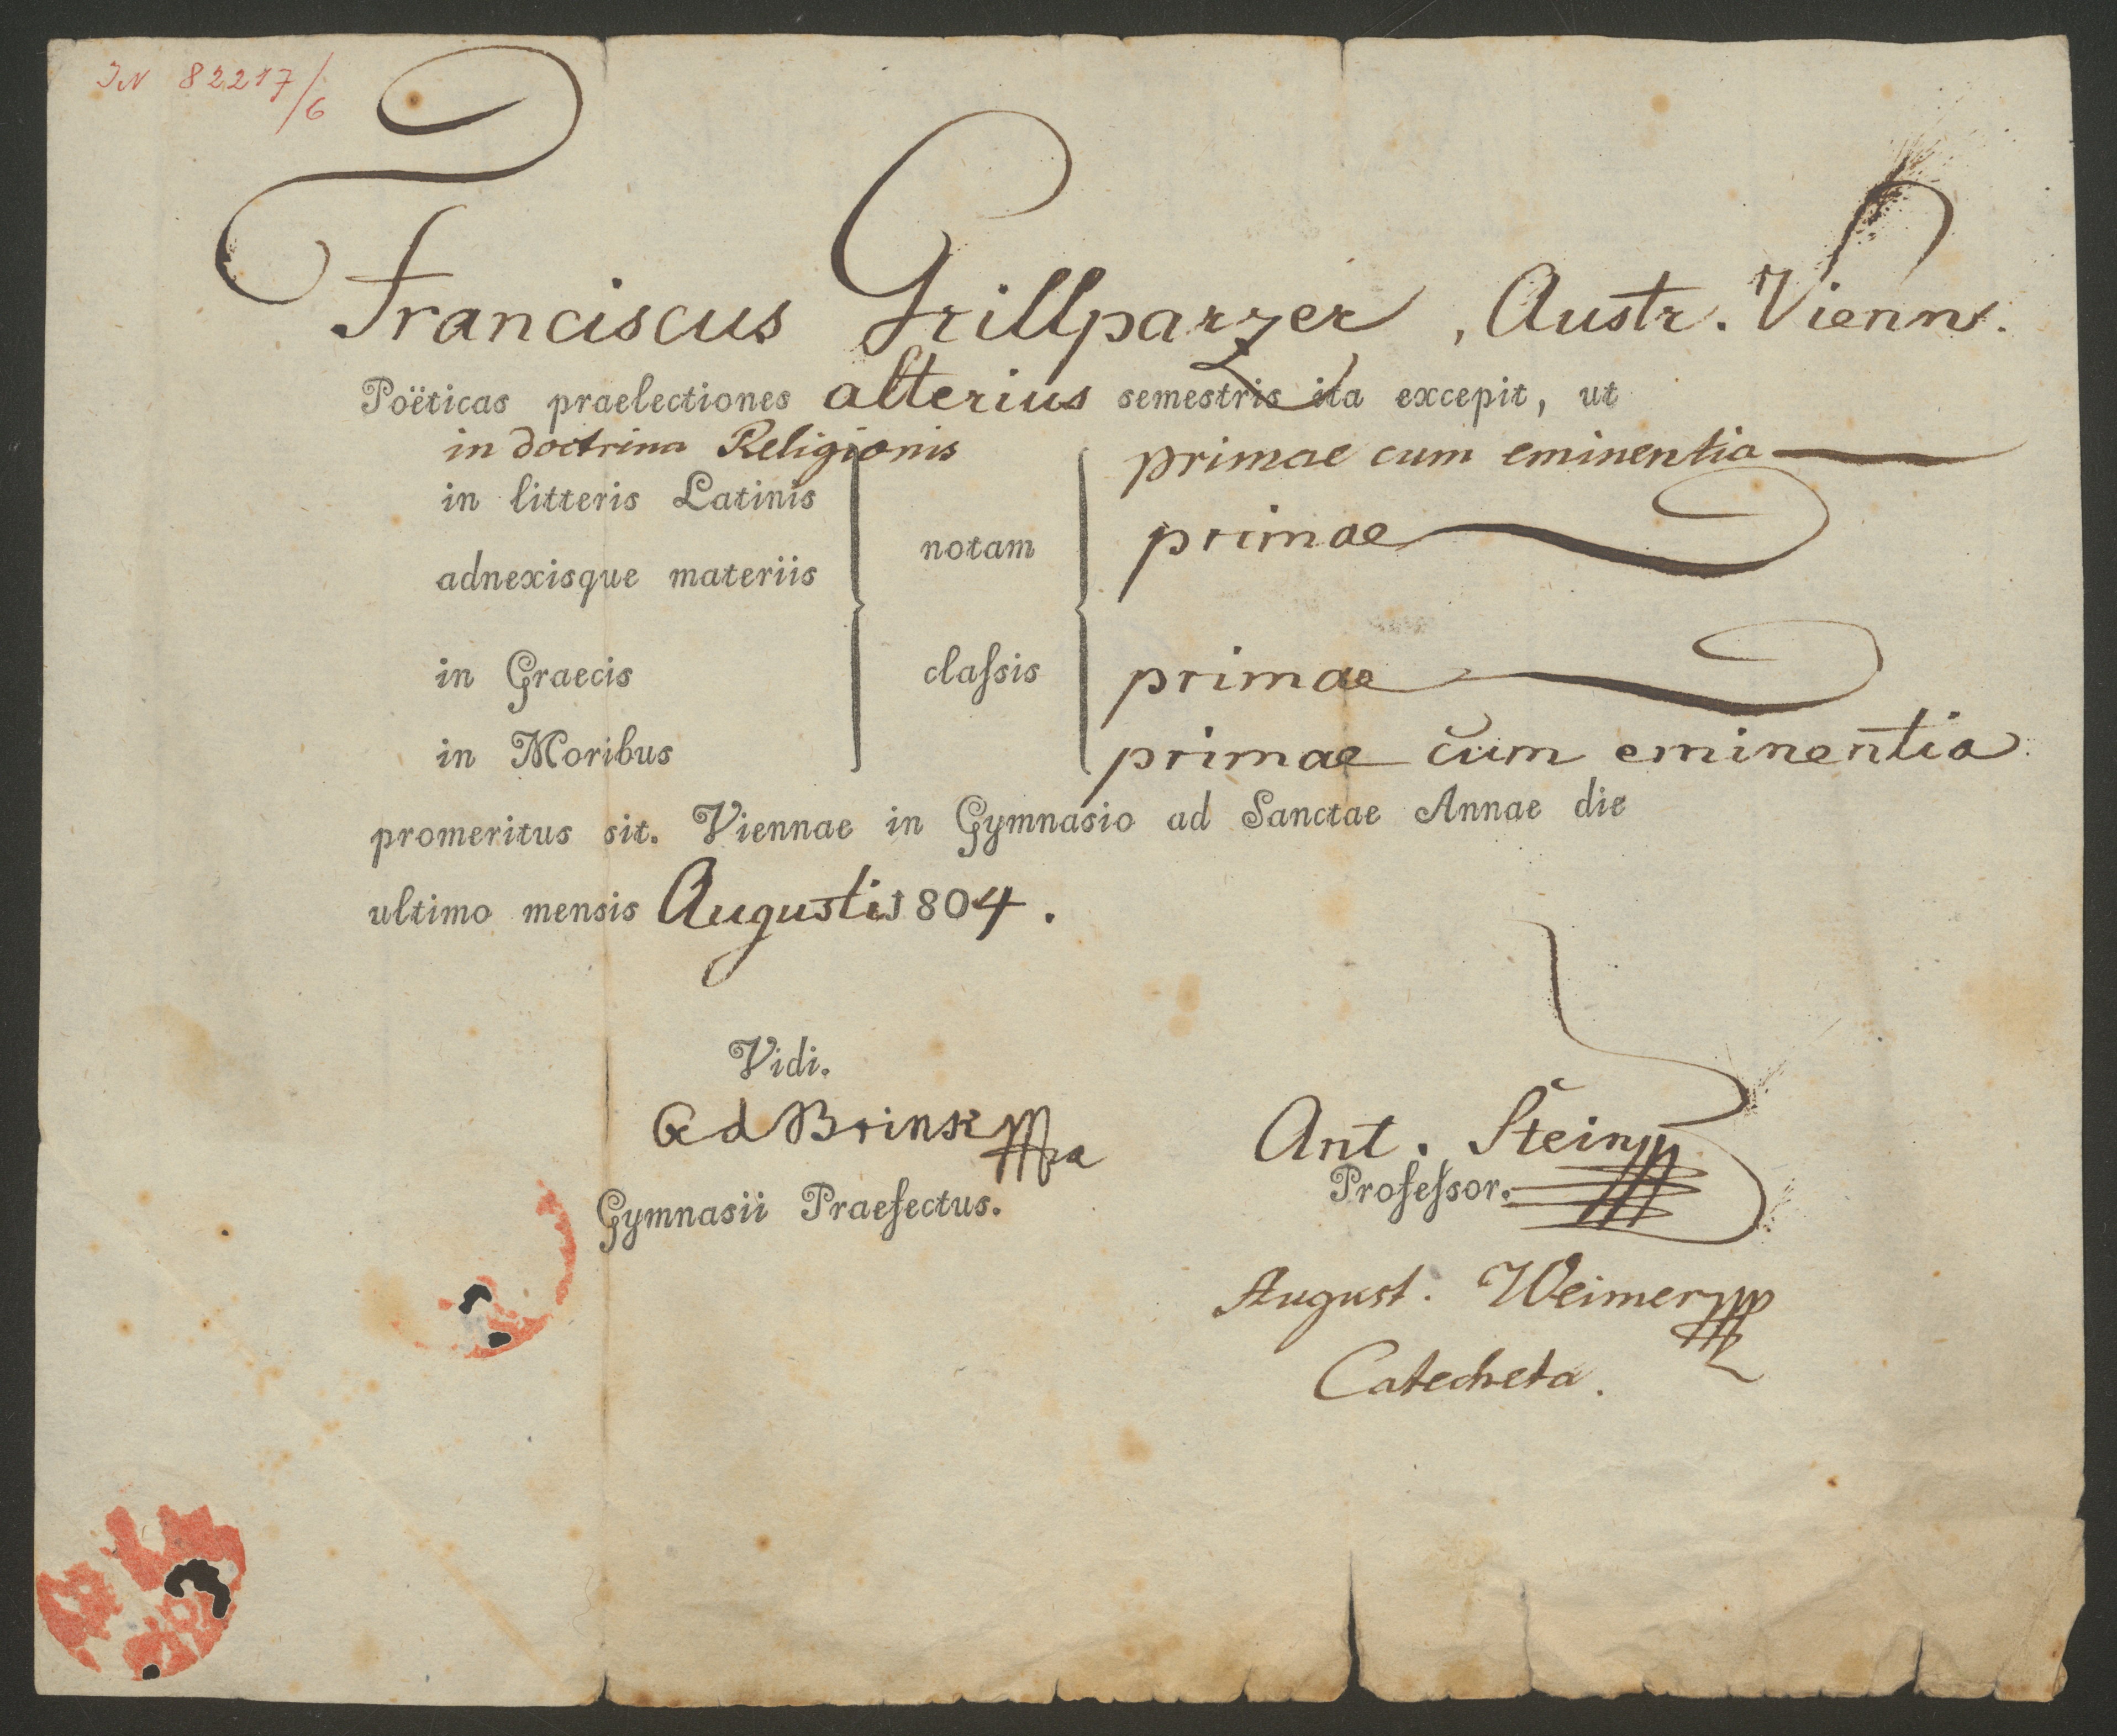 IN 82217/6
Franciscus Grillparzer, Austr. Vienn.
Poëticas praelectiones alterius semestris ita excepit, ut
in doctrina Religionis primae cum eminentia
in litteris Latinis
adnexisque materiis notam primae
in Graecis claſsis primae
in Moribus primae cum eminentia
promeritus sit. Viennae in Gymnasio ad Sanctae Annae die
ultimo mensis Augusti 1804.
Vidi.
Gymnasii Praefectus.
Ant. Stein
Profeſsor.
August. Weimer
Catecheta.